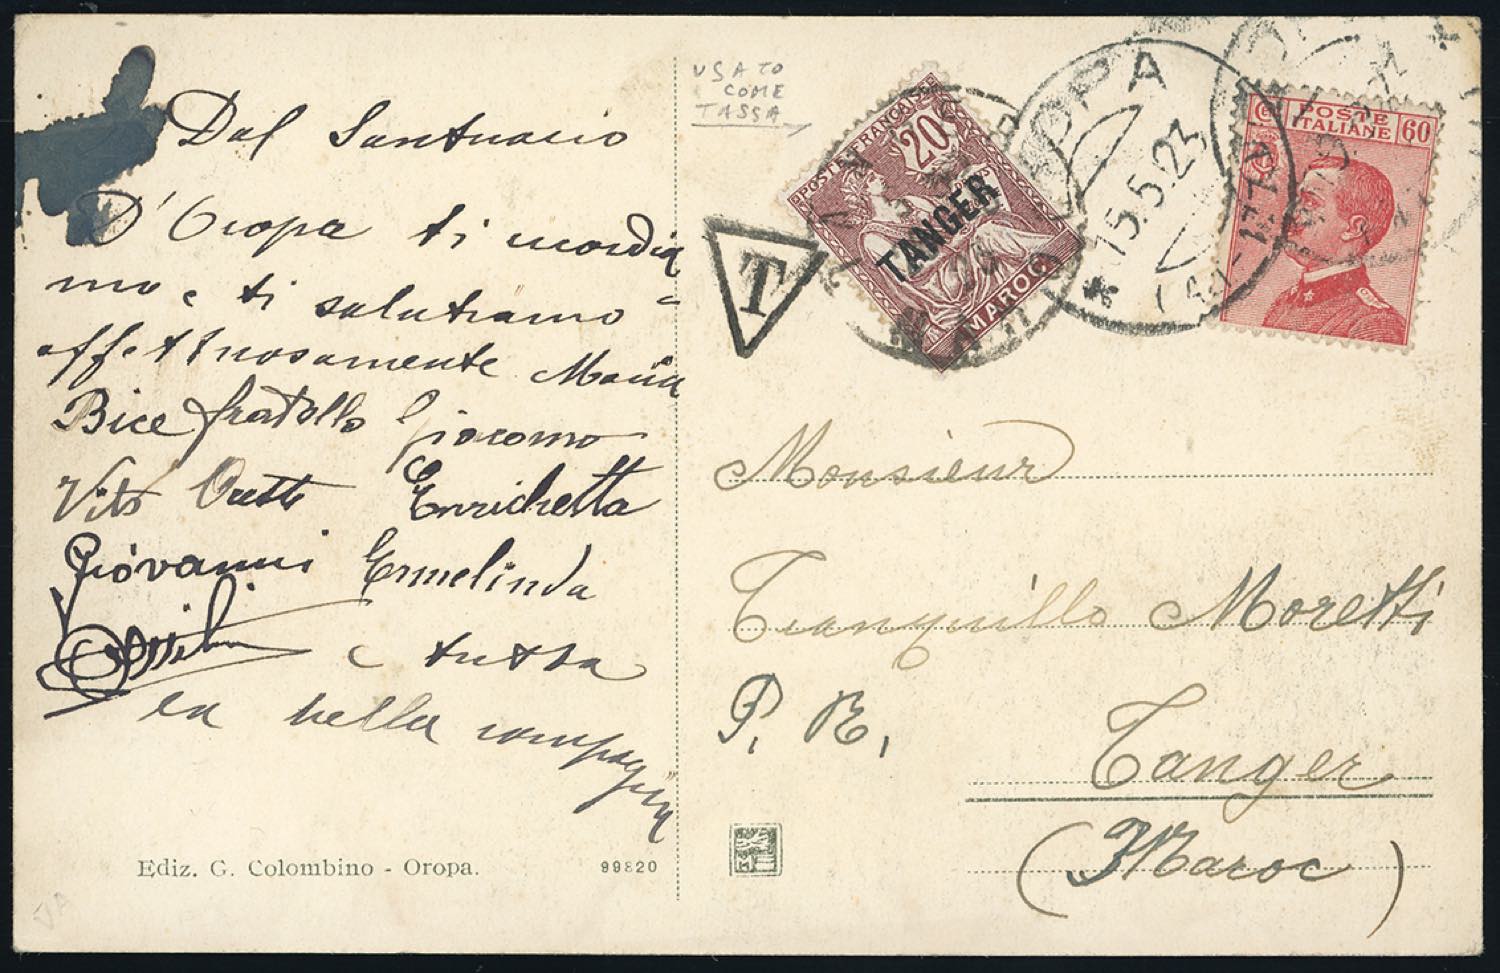 Dal Santuario
D'Oropa ti ricordia
mo e ti salutiamo
affettuosamente Maria
Bice fratello Giacomo
Vito Oreste Enrichetta
Giovanni Ermelinda
e tutta
la bella compagnia
Ediz. G. Colombino - Oropa.
99820
USATO
COME
TASSA
T
POSTE FRANÇAISE
20
TANGER
MAROC
OROPA
* 15.5.23
POSTE
ITALIANE
60
Monsieur
Tranquillo Moretti
P. R.
Tanger
(Maroc)